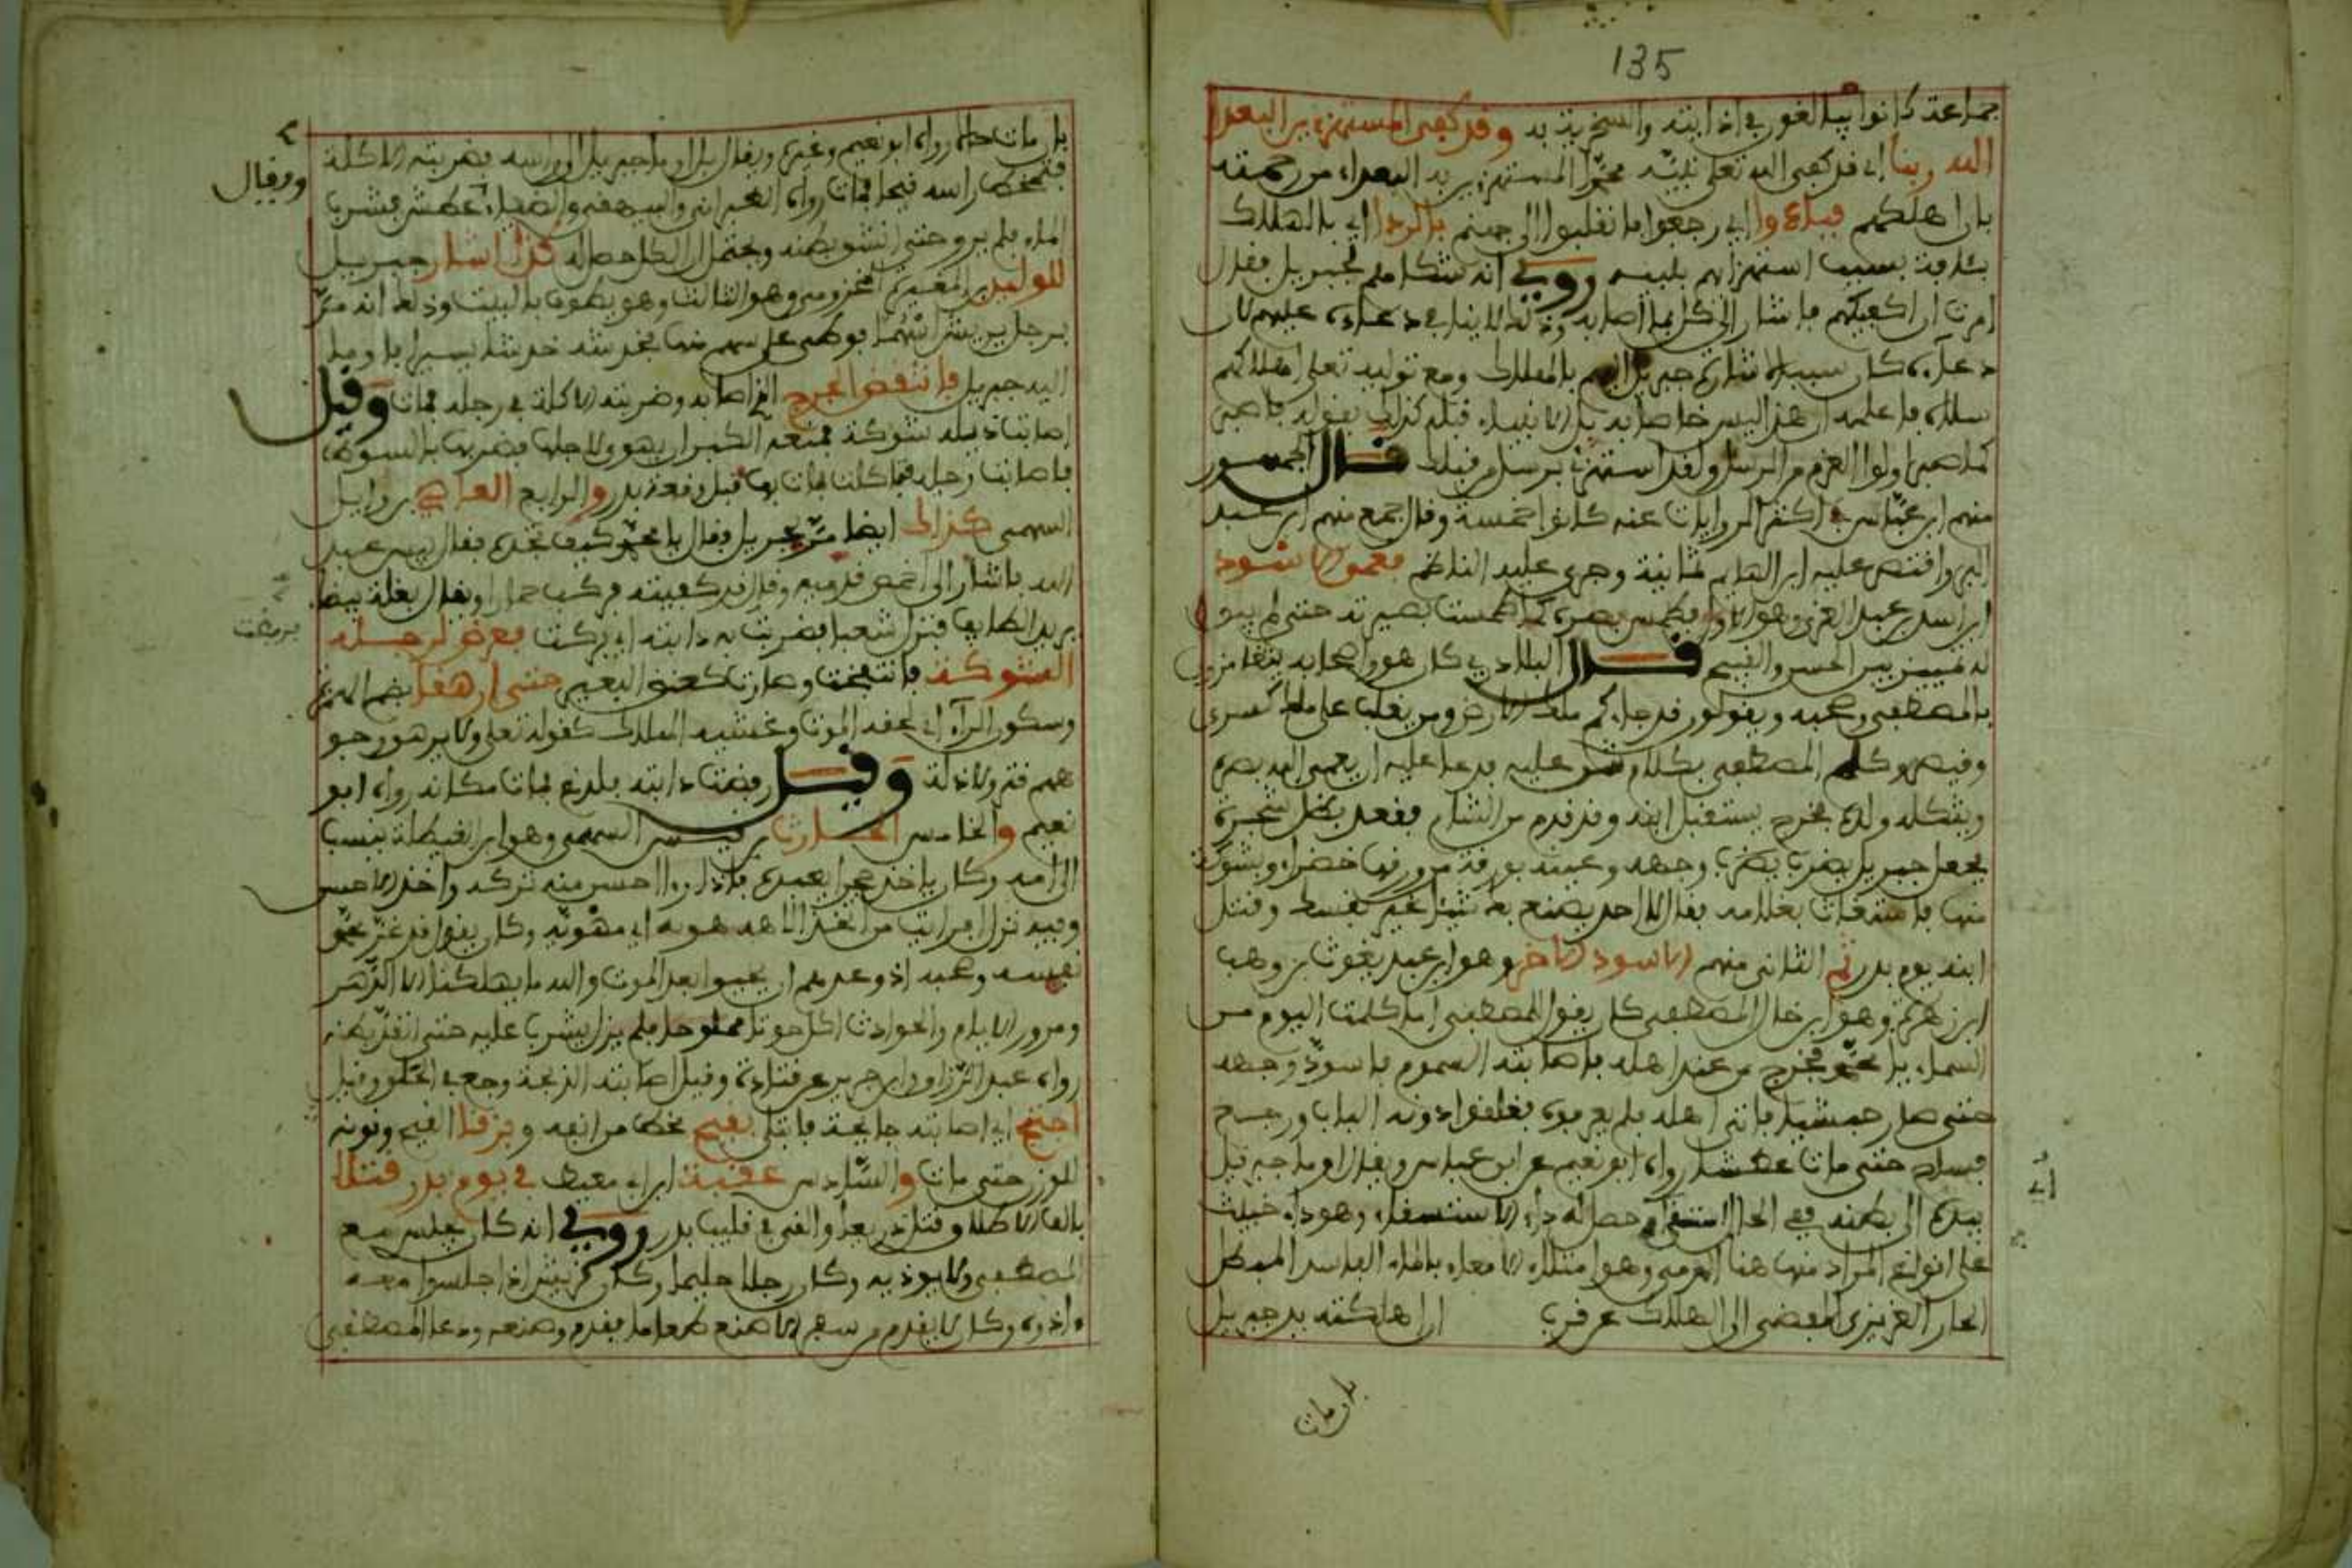 135
جماعة كانوا يبالغون في اذايته والسخرية به وقد كفى المستهزءين البعداء
الله ربنا اي قد كفى الله تعلى نبيه محمدا المستهزءين به البعداء من رحمته
بان اهلكهم فباءوا اي رجعوا وانقلبوا الى جهنم بالردا اي بالهلاك
بسبب استهزائهم بنبيه روي انه شكاهم لجبريل فقال
امرت ان اكفيكهم فاشار الى كل بما اصابه وذلك لا ينافي دعاءه عليهم لان
دعاءه كان سبب اشارة جبريل اليهم بالهلاك ومع توليه تعلى اهلاكهم
سلاه باعلامه ان هذا ليس خاصا به بل الانبياء قبله كذلك بقوله فاصبر
كما صبر اولوا العزم من الرسل ولقد استهزئ برسل من قبلك قال الجمهور
منهم ابن عباس في اكثر الروايات عنه كانوا خمسة وقال جمع منهم ابن عبد
البر واقتصر عليه ابن القيم ثمانية وجرى عليه الناظم فعمي الاسود
ابن اسد بن عبد العزى وهو الاول فطمس بصره كما طمست بصيرته حتى لم يبق
له تمييز بين الحسن والقبيح قال البلاذري كان هو واصحابه يتغامزون
بالمصطفى وصحبه ويقولون قد جاءكم ملك الارض ومن يغلب على ملك كسرى
وقيصر وكلم المصطفى بكلام شق عليه فدعا عليه ان يعمي الله بصره
ويثكله ولده فخرج يستقبل ابنه وقد قدم من الشام فقعد بظل شجرة
فجعل جبريل يضرب وجهه وعينه بورقة من ورقها خضراء وبشوك
منها فاستغاث بغلامه فقال لا احد يصنع بك شيئا غير نفسك وقتل
ابنه يوم بدر ثم الثاني منهم الاسود الاخر وهو ابن عبد يغوث بن وهب
ابن زهرة وهو ابن خال المصطفى كان يقول للمصطفى اما كلمت اليوم من
السماء يا محمد فخرج من عند اهله فاصابته السموم فاسود وجهه
حتى صار حبشيا فاتى اهله فلم يعرفوه فغلقوا دونه الباب ورجع
حتى مات عطشا رواه ابو نعيم عن ابن عباس ويقال اومأ جبريل
بيده الى بطنه ففي الحال حصل له داء الاستسقاء وهو داء خبيث
على انواع المراد منها هنا وهو امتلاء الامعاء بالماء الفاسد المبطل
الحار الغريزي المفضي الى الهلاك عن قرب ان اهلكته يد جبريل
اي
بان مات
بان مات رواه ابو نعيم وغيره ويقال بل اومأ جبريل الى راسه فضربته الاكلة
فتمخض راسه قيحا فمات رواه الطبراني والبيهقي والضياء عطش فشرب
ويقال
الماء فلم يرو حتى انشق بطنه ويحتمل ان الكل حصل له كذا اشار جبريل
للوليد بن المغيرة المخزومي وهو الثالث وهو يطوف بالبيت وذلك انه مر
برجل يريش نبلا فوطئ على سهم منها فخدشه خدشا يسيرا فاومأ
اليه جبريل فانتقض الجرح الذي اصابه وضربته الاكلة في رجله فمات وقيل
اصابت ذيله شوكة فمنعه الكبر ان يهوي لاجلها
فاصابت رجله فتاكلت فمات بها قبل وقعة بدر والرابع العاصي بن وايل
السهمي كذلك ايضا مر بجبريل فقال يا محمد كيف تجده فقال بيس عبد
الله فاشار الى اخمص قدميه وقال قد كفيته فركب حمارا ويقال بغلة بيضاء
يريد الطايف فنزل شعبا فضربت به دابته اي بركت فعرض لرجله
فربضت
الشوكة فانتفخت وصارت كعنق البعير حتى ارهقا بضم الهمزة
وسكون الراء اي لحقه الموت وغشيه الهلاك كقوله تعلى ولا يرهق وجو
ههم قتر ولا ذلة وقيل ربضت دابته فلدغ فمات مكانه رواه ابو
نعيم والخامس الحارث بن قيس السهمي وهو ابن الغيطلة ينسب
الى امه وكان ياخذ حجرا يعبده فاذا راى احسن منه تركه واخذ الاحسن
وفيه نزل افرايت من اتخذ الاهه هواه اي مهويه وكان يقول قد غر محمد
نفسه وصحبه اذ وعدهم ان يحيوا بعد الموت والله ما يهلكنا الا الدهر
ومرور الايام والحوادث اكل حوتا مملوحا فلم يزل يشرب عليه حتى انقد بطنه
رواه عبد الرزاق وابن جرير عن قتادة وقيل اصابته الذبحة وجع في الحلق وقيل
اجتيح اي اصابته جايحة فابتلي بقيح مخط من انفه القيح ونونه
للوزن حتى مات والسادس عقبة ابن ابي معيط في يوم بدر قتلا
بالف الاطلاق وقتل والقي في قليب بدر روي انه كان يجلس مع
المصطفى ولا يوذيه وكان رجلا حليما وكان قريش اذا جلسوا معه
اذوه وكان لا يقدم من سفر الا صنع طعاما فقدم وصنعه ودعا المصطفى